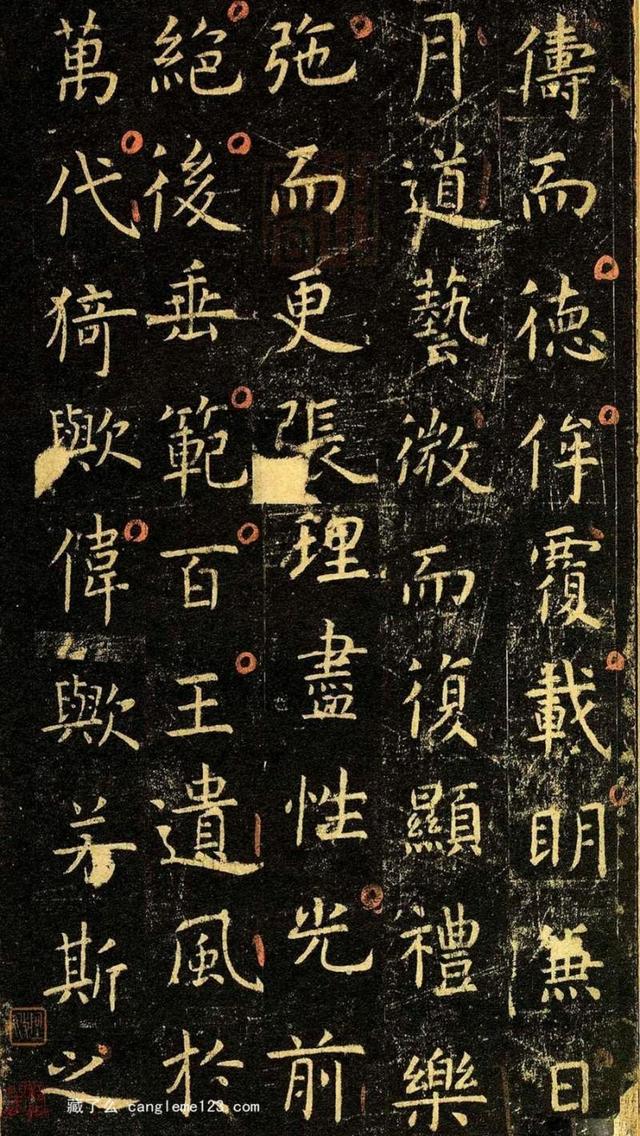 儔而德侔覆載明無日
月道藝微而復顯禮樂
弛而更張理盡性光前
絕後垂範百王遺風於
萬代猗歟偉歟若斯之
藏了么 cangleme123.com